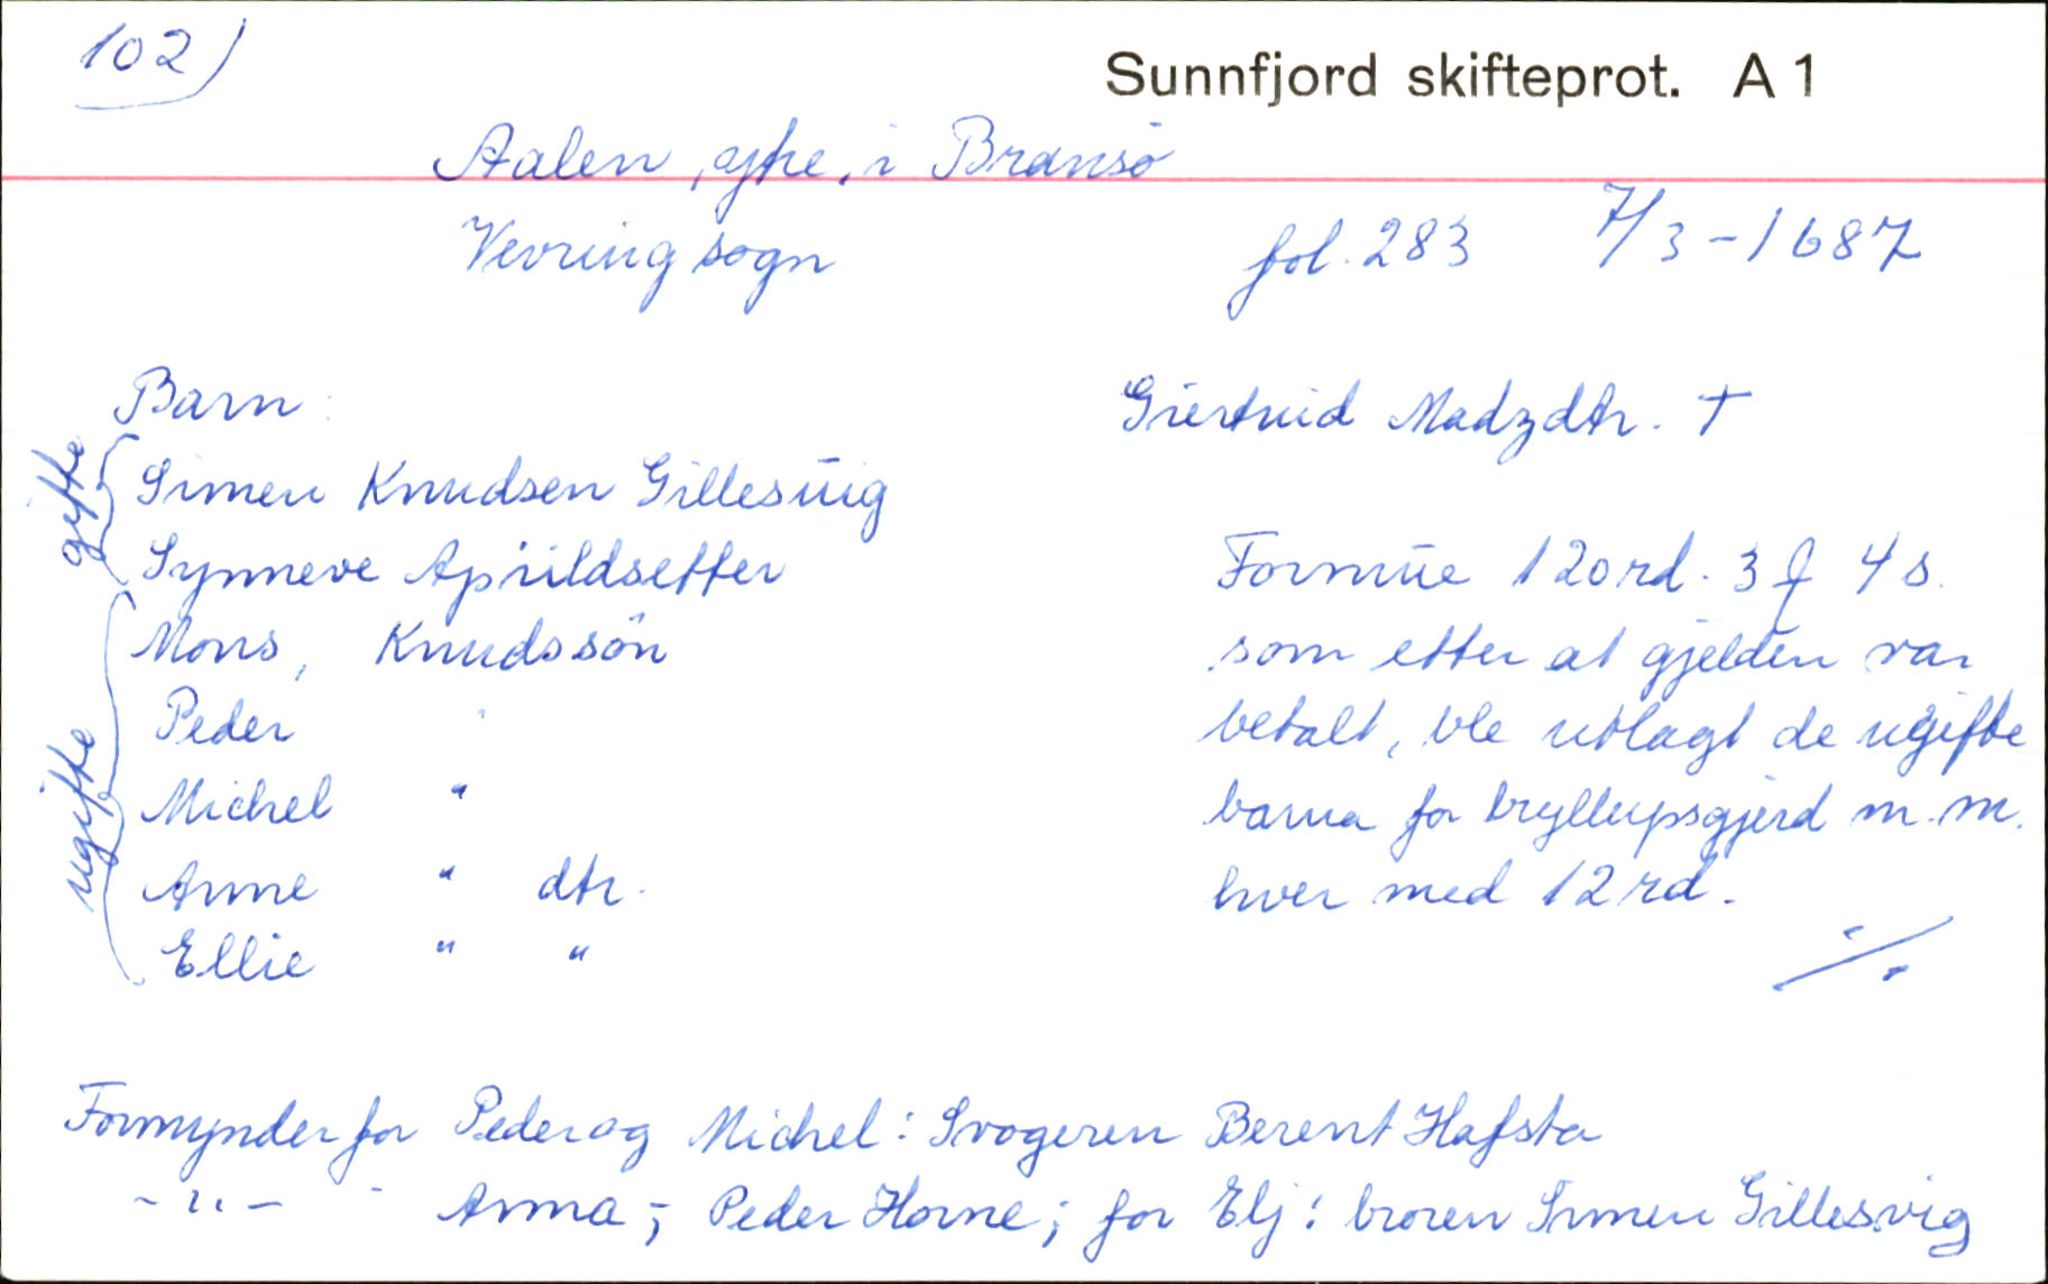 102)
Sunnfjord skifteprot. A 1
Aalen, i Bransö
Vevring sogn
fol. 283 7/3-1687
Barn:
Giertruid Madzdtr. †
gifte
Simen Knudsen Gillesuig
Synneve Apuldsetter
ugifte
Mons, Knudssön
Peder "
Michel "
Anne " dtr.
Ellie " "
Formue 120 rd. 3 ƒ 4 s.
som etter at gjelden var
betalt, ble utlagt de ugifte
barna for bryllupsgjerd m.m.
hver med 12 rd.
./.
Formynder for Peder og Michel: Svogeren Berent Hafsta
-"- - Anna; Peder Horne; for Elj: broren Simen Gillesvig